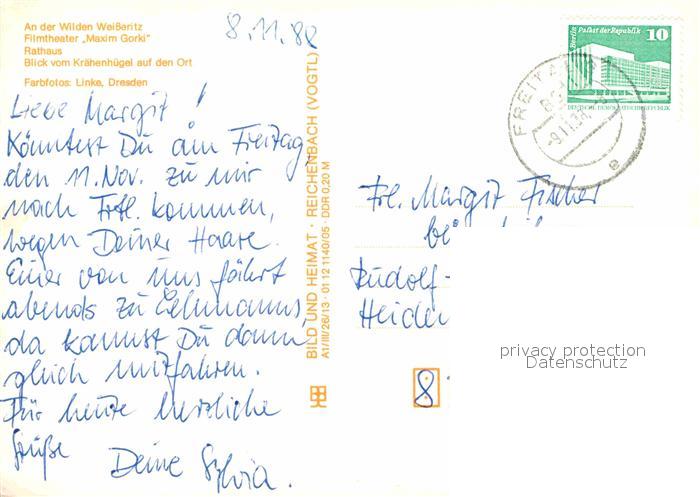 An der Wilden Weißeritz
Filmtheater „Maxim Gorki“
Rathaus
Blick vom Krähenhügel auf den Ort
Farbfotos: Linke, Dresden
8.11.88
Liebe Margit!
Könntest Du am Freitag
den 11. Nov. zu mir
nach Frtl. kommen,
wegen Deiner Haare.
Einer von uns fährt
abends zu Lehmanns,
da kannst Du dann
gleich mitfahren.
Für heute herzliche
Grüße
Deine Sylvia.
BILD UND HEIMAT · REICHENBACH (VOGTL)
A1/III/26/13 · 01 12 1140/05 · DDR 0,20 M
Berlin Palast der Republik
10
DEUTSCHE DEMOKRATISCHE REPUBLIK
FREITAL
Frl. Margit Fischer
bei
Rudolf-
Heider
8
privacy protection
Datenschutz